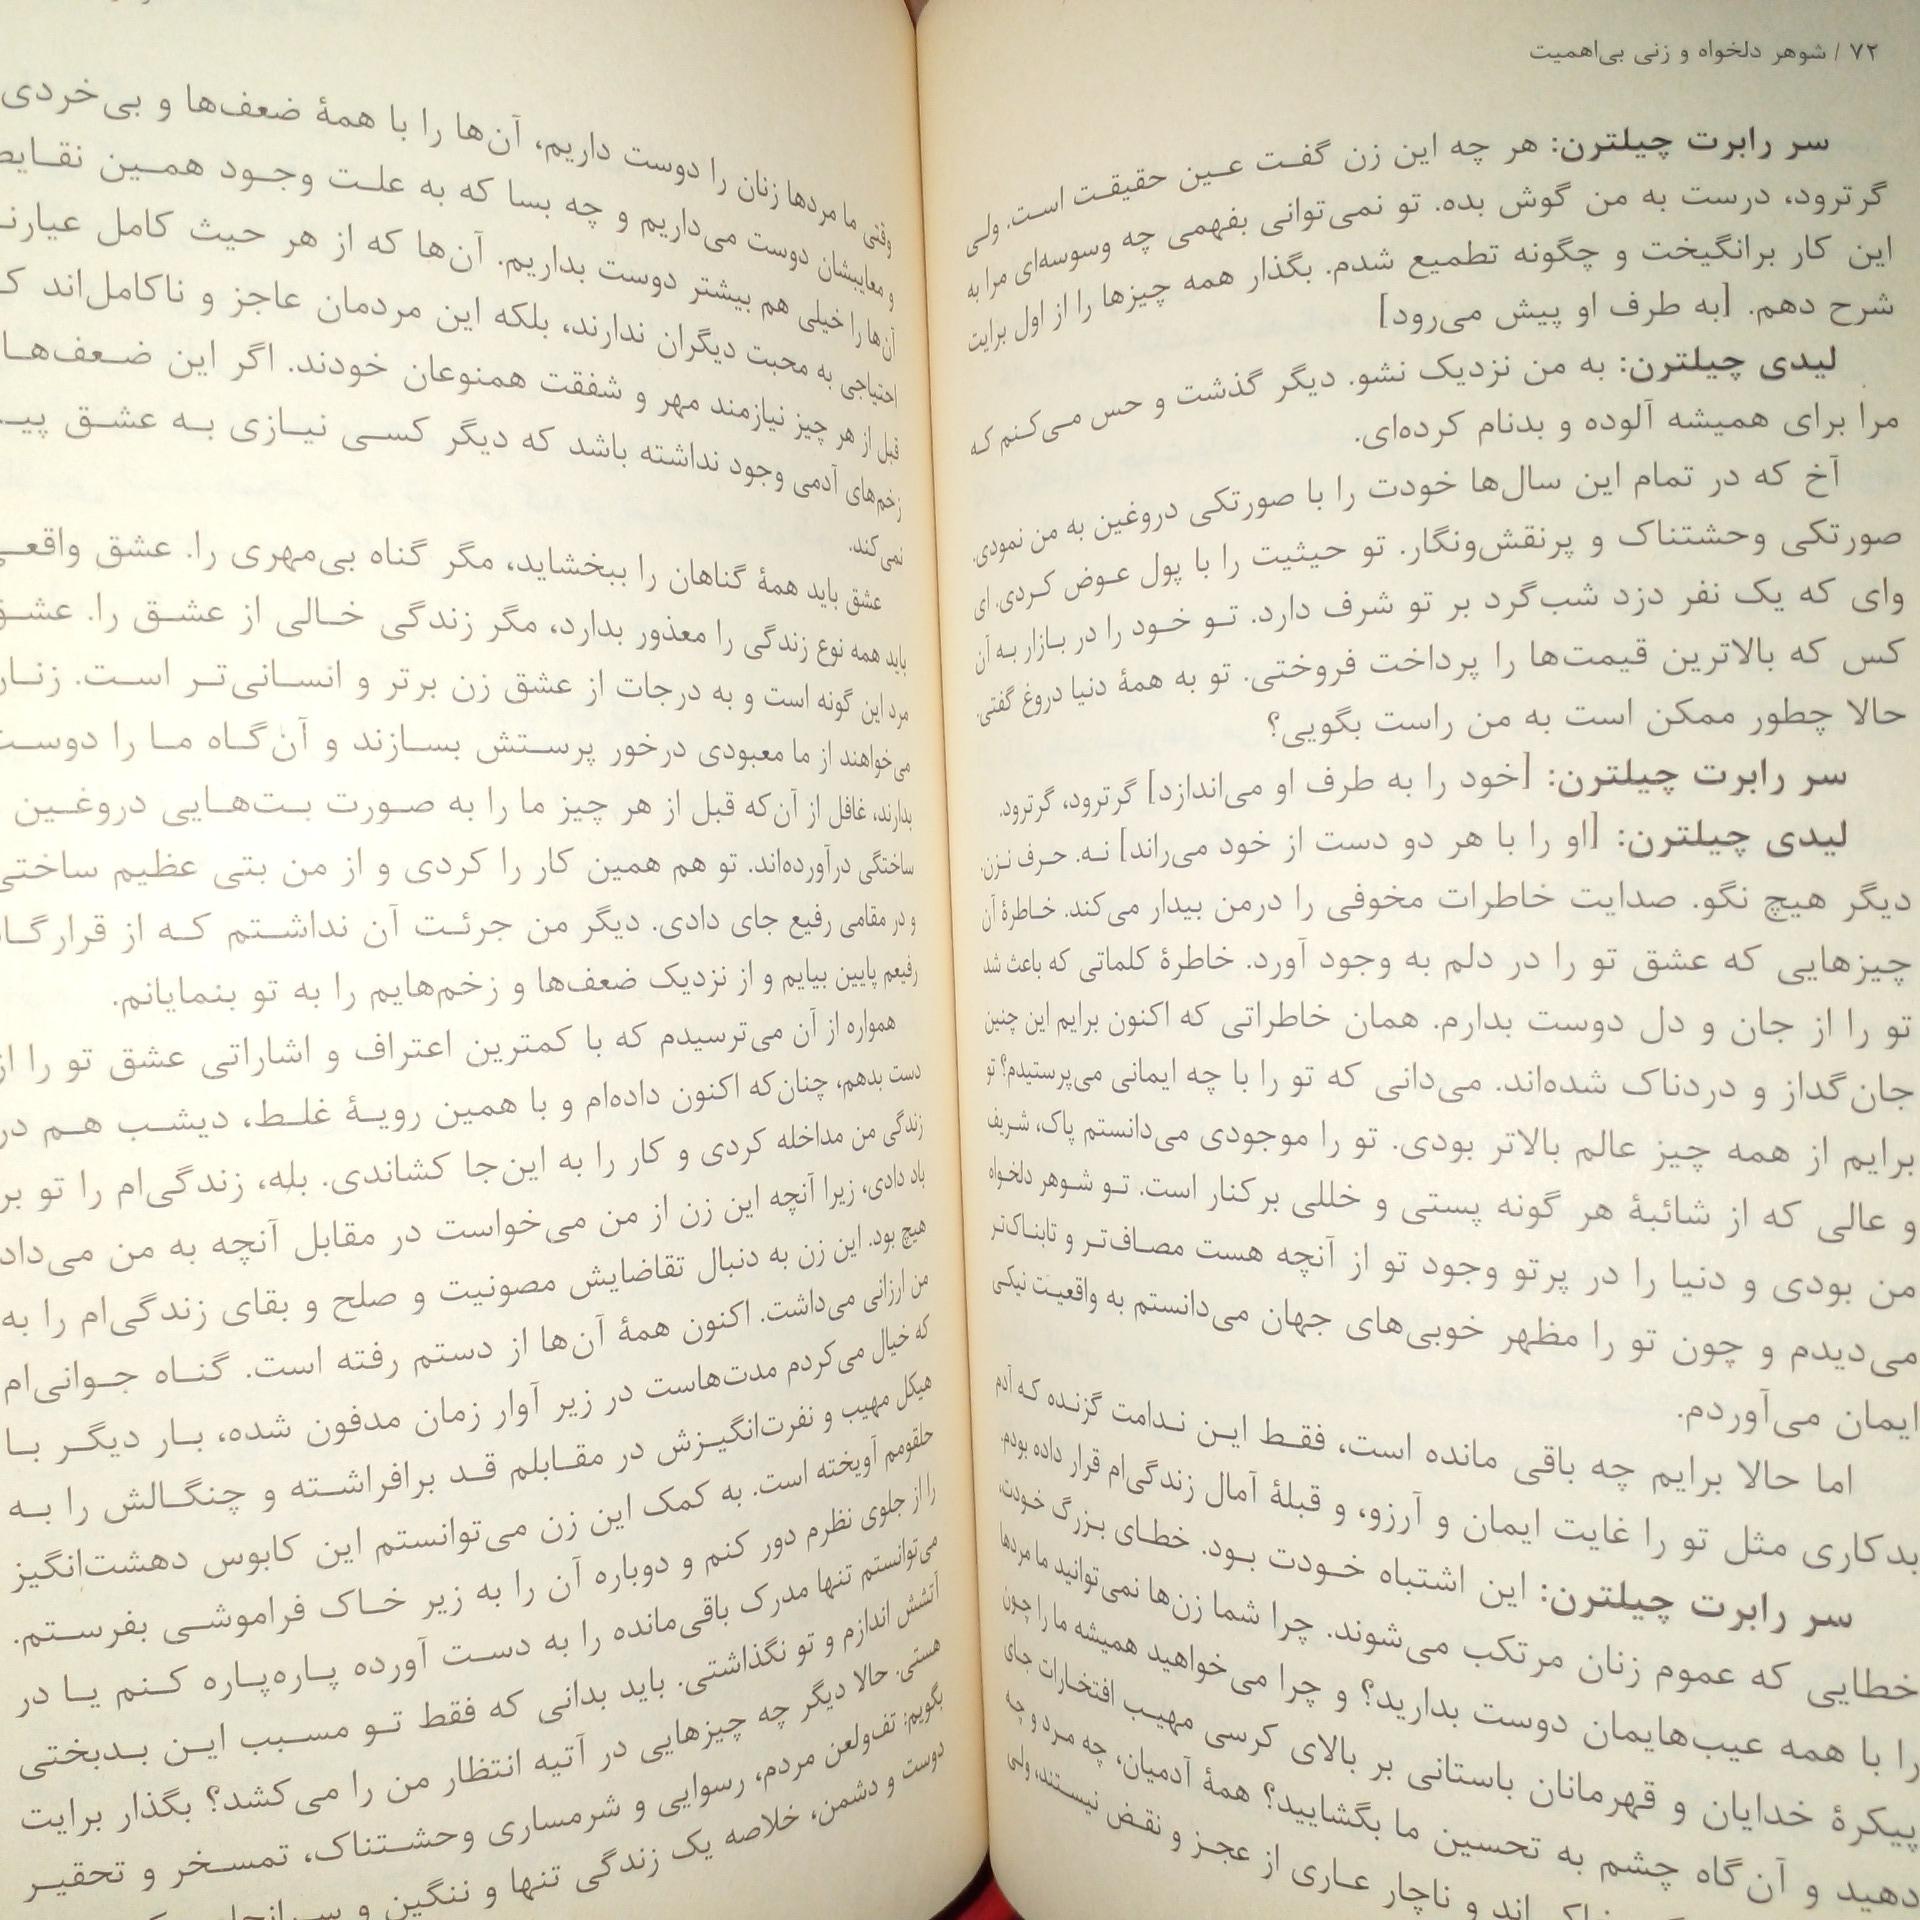 ۷۲ / شوهر دلخواه و زنی بی‌اهمیت
سر رابرت چیلترن: هر چه این زن گفت عین حقیقت است. ولی
گرترود، درست به من گوش بده. تو نمی‌توانی بفهمی چه وسوسه‌ای مرا به
این کار برانگیخت و چگونه تطمیع شدم. بگذار همه چیزها را از اول برایت
شرح دهم. [به طرف او پیش می‌رود]
لیدی چیلترن: به من نزدیک نشو. دیگر گذشت و حس می‌کنم که
مرا برای همیشه آلوده و بدنام کرده‌ای.
آخ که در تمام این سال‌ها خودت را با صورتکی دروغین به من نمودی.
صورتکی وحشتناک و پرنقش‌ونگار. تو حیثیت را با پول عوض کردی. ای
وای که یک نفر دزد شب‌گرد بر تو شرف دارد. تو خود را در بازار به آن
کس که بالاترین قیمت‌ها را پرداخت فروختی. تو به همهٔ دنیا دروغ گفتی.
حالا چطور ممکن است به من راست بگویی؟
سر رابرت چیلترن: [خود را به طرف او می‌اندازد] گرترود، گرترود.
لیدی چیلترن: [او را با هر دو دست از خود می‌راند] نه. حرف نزن.
دیگر هیچ نگو. صدایت خاطرات مخوفی را درمن بیدار می‌کند. خاطرهٔ آن
چیزهایی که عشق تو را در دلم به وجود آورد. خاطرهٔ کلماتی که باعث شد
تو را از جان و دل دوست بدارم. همان خاطراتی که اکنون برایم این چنین
جان‌گداز و دردناک شده‌اند. می‌دانی که تو را با چه ایمانی می‌پرستیدم؟ تو
برایم از همه چیز عالم بالاتر بودی. تو را موجودی می‌دانستم پاک، شریف
و عالی که از شائبهٔ هر گونه پستی و خللی برکنار است. تو شوهر دلخواه
من بودی و دنیا را در پرتو وجود تو از آنچه هست مصاف‌تر و تابناک‌تر
می‌دیدم و چون تو را مظهر خوبی‌های جهان می‌دانستم به واقعیت نیکی
ایمان می‌آوردم.
اما حالا برایم چه باقی مانده است، فقط این ندامت گزنده که آدم
بدکاری مثل تو را غایت ایمان و آرزو، و قبلهٔ آمال زندگی‌ام قرار داده بودم.
سر رابرت چیلترن: این اشتباه خودت بود. خطای بزرگ خودت،
خطایی که عموم زنان مرتکب می‌شوند. چرا شما زن‌ها نمی‌توانید ما مردها
را با همه عیب‌هایمان دوست بدارید؟ و چرا می‌خواهید همیشه ما را چون
پیکرهٔ خدایان و قهرمانان باستانی بر بالای کرسی مهیب افتخارات جای
دهید و آن‌گاه چشم به تحسین ما بگشایید؟ همهٔ آدمیان، چه مرد و چه
اند و ناچار عاری از عجز و نقض نیستند، ولی
وقتی ما مردها زنان را دوست داریم، آن‌ها را با همهٔ ضعف‌ها و بی‌خردی
و معایبشان دوست می‌داریم و چه بسا که به علت وجود همین
آن‌ها را خیلی هم بیشتر دوست بداریم. آن‌ها که از هر حیث کامل
احتیاجی به محبت دیگران ندارند، بلکه این مردمان عاجز و ناکامل‌اند
قبل از هر چیز نیازمند مهر و شفقت همنوعان خودند. اگر این ضعف‌ها
زخم‌های آدمی وجود نداشته باشد که دیگر کسی نیازی به عشق
نمی‌کند.
عشق باید همهٔ گناهان را ببخشاید، مگر گناه بی‌مهری را. عشق واقعی
باید همه نوع زندگی را معذور بدارد، مگر زندگی خالی از عشق را. عشق
مرد این گونه است و به درجات از عشق زن برتر و انسانی‌تر است. زنان
می‌خواهند از ما معبودی درخور پرستش بسازند و آن‌گاه ما را دوست
بدارند، غافل از آن‌که قبل از هر چیز ما را به صورت بت‌هایی دروغین
ساختگی درآورده‌اند. تو هم همین کار را کردی و از من بتی عظیم ساختی
و در مقامی رفیع جای دادی. دیگر من جرئت آن نداشتم که از قرارگاه
رفیعم پایین بیایم و از نزدیک ضعف‌ها و زخم‌هایم را به تو بنمایانم.
همواره از آن می‌ترسیدم که با کمترین اعتراف و اشاراتی عشق تو را از
دست بدهم، چنان‌که اکنون داده‌ام و با همین رویهٔ غلط، دیشب هم در
زندگی من مداخله کردی و کار را به این‌جا کشاندی. بله، زندگی‌ام را تو بر
باد دادی، زیرا آنچه این زن از من می‌خواست در مقابل آنچه به من می‌داد
هیچ بود. این زن به دنبال تقاضایش مصونیت و صلح و بقای زندگی‌ام را به
من ارزانی می‌داشت. اکنون همهٔ آن‌ها از دستم رفته است. گناه جوانی‌ام
که خیال می‌کردم مدت‌هاست در زیر آوار زمان مدفون شده، بار دیگر با
هیکل مهیب و نفرت‌انگیزش در مقابلم قد برافراشته و چنگالش را به
حلقومم آویخته است. به کمک این زن می‌توانستم این کابوس دهشت‌انگیز
را از جلوی نظرم دور کنم و دوباره آن را به زیر خاک فراموشی بفرستم.
می‌توانستم تنها مدرک باقی‌مانده را به دست آورده پاره‌پاره کنم یا در
آتشش اندازم و تو نگذاشتی. باید بدانی که فقط تو مسبب این بدبختی
هستی. حالا دیگر چه چیزهایی در آتیه انتظار من را می‌کشد؟ بگذار برایت
بگویم: تف‌ولعن مردم، رسوایی و شرمساری وحشتناک، تمسخر و تحقیر
دوست و دشمن، خلاصه یک زندگی تنها و ننگین و